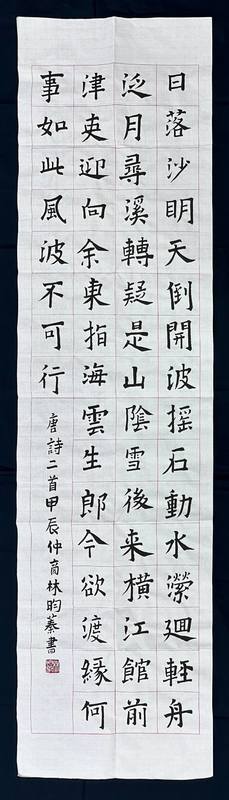 日落沙明天倒開波搖石動水瀠迴輕舟
泛月尋溪轉疑是山陰雪後来橫江館前
津吏迎向余東指海雲生郎今欲渡緣何
事如此風波不可行
唐詩二首甲辰仲商林昀蓁書